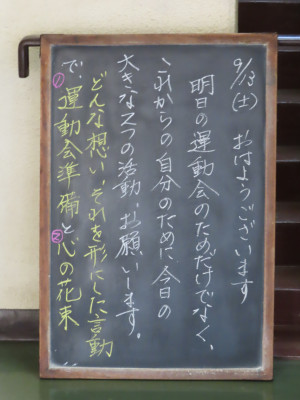 9/13(土) おはようございます
明日の運動会のためだけでなく、
これからの自分のために今日の
大きな2つの活動、お願いします。
どんな想い、それを形にした言動
で、①運動会準備と②心の花束…